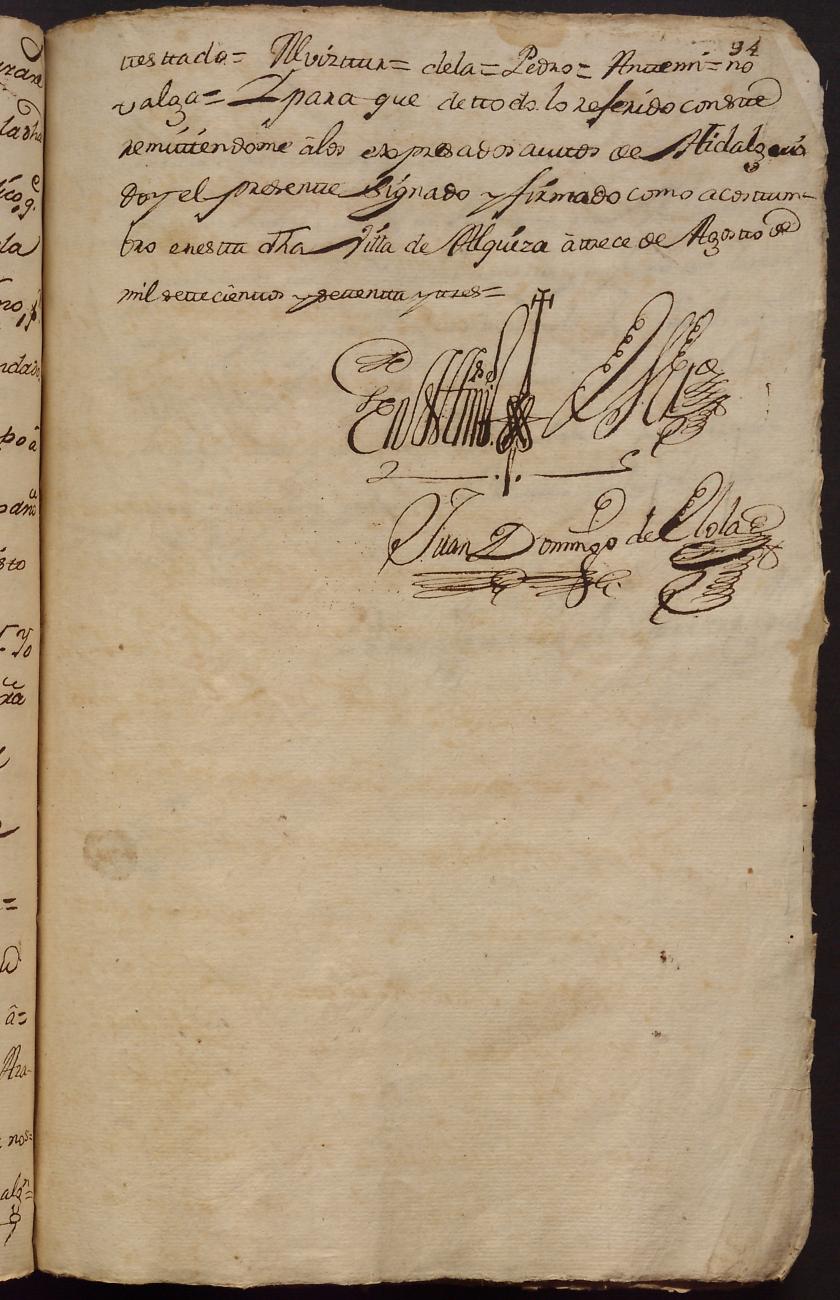 94
testtado= Alviztur= dela= Pedro= Antemi= no
valga= Y para que de ttodo lo referido conste
remittiendome â los expresados auttos de Hidalguia
doy el presente signado y firmado como acostum-
bro en estta dha Villa de Alquiza â trece de Agosto de
mil settecienttos y settentta y tres=
En testtimº de Verdad
Juan Domingo de Olola